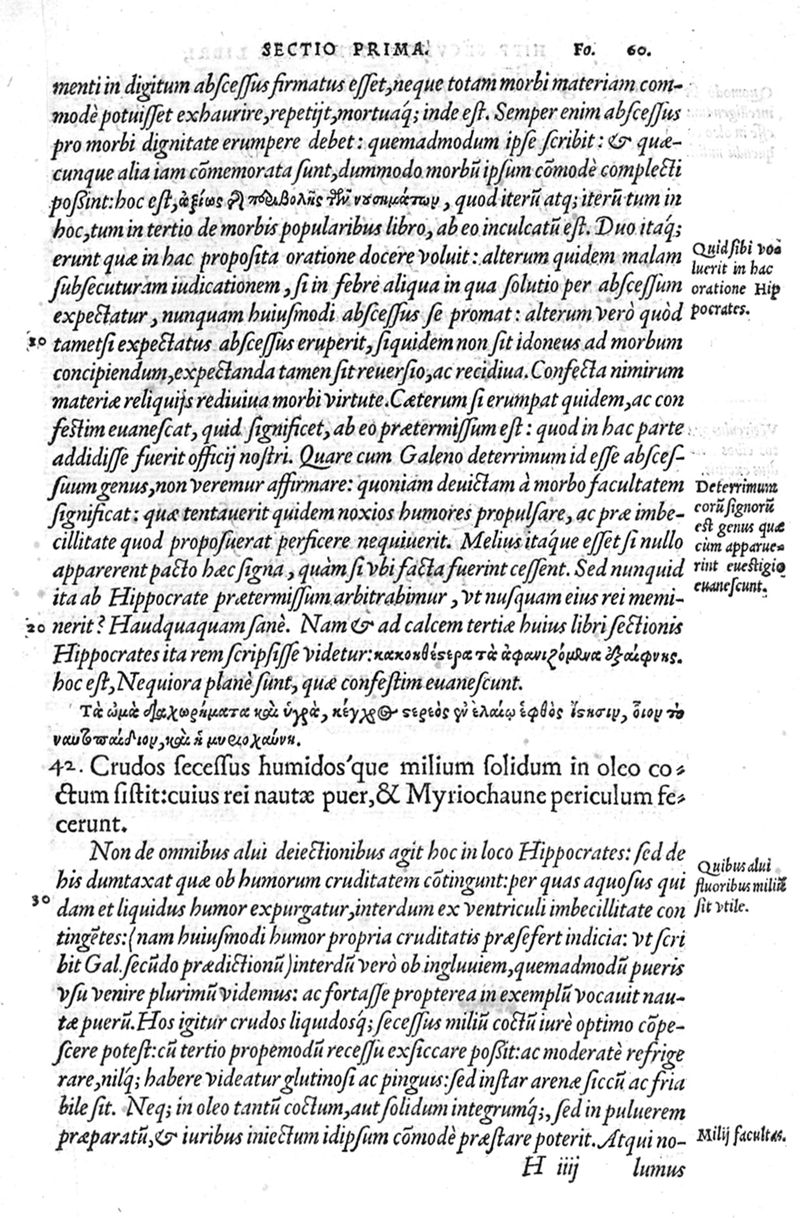 SECTIO PRIMA. Fo. 60.
menti in digitum abſceſſus firmatus eſſet, neque totam morbi materiam com-
modè potuiſſet exhaurire, repetijt, mortuaq́; inde eſt. Semper enim abſceſſus
pro morbi dignitate erumpere debet: quemadmodum ipſe ſcribit: & quæ-
cunque alia iam cōmemorata ſunt, dummodo morbū ipſum cōmodè complecti
poßint: hoc eſt, ἀξίως δὲ περιβολῆς τῶν νουσημάτων, quod iterū atq; iterū tum in
hoc, tum in tertio de morbis popularibus libro, ab eo inculcatū eſt. Duo itaq́;
erunt quæ in hac propoſita oratione docere voluit: alterum quidem malam
ſubſecuturam iudicationem, ſi in febre aliqua in qua ſolutio per abſceſſum
expectatur, nunquam huiuſmodi abſceſſus ſe promat: alterum verò quòd
Quid ſibi voa
luerit in hac
oratione Hip
pocrates.
10 tametſi expectatus abſceſſus eruperit, ſiquidem non ſit idoneus ad morbum
concipiendum, expectanda tamen ſit reuerſio, ac recidiua. Confecta nimirum
materiæ reliquijs rediuiua morbi virtute. Cæterum ſi erumpat quidem, ac con
feſtim euaneſcat, quid ſignificet, ab eo prætermiſſum eſt: quod in hac parte
addidiſſe fuerit officij noſtri. Quare cum Galeno deterrimum id eſſe abſceſ-
ſuum genus, non veremur affirmare: quoniam deuictam à morbo facultatem
ſignificat: quæ tentauerit quidem noxios humores propulſare, ac præ imbe-
cillitate quod propoſuerat perficere nequiuerit. Melius itaque eſſet ſi nullo
apparerent pacto hæc ſigna, quàm ſi vbi facta fuerint ceſſent. Sed nunquid
ita ab Hippocrate prætermiſſum arbitrabimur, vt nuſquam eius rei memi-
Deterrimum
eorū ſignorū
eſt genus quæ
cùm apparue-
rint eueſtigio
euaneſcunt.
20 nerit? Haudquaquam ſanè. Nam & ad calcem tertiæ huius libri ſectionis
Hippocrates ita rem ſcripſiſſe videtur: κακοηθέστερα τὰ ἀφανιζόμενα ἐξαίφνης.
hoc eſt, Nequiora planè ſunt, quæ confeſtim euaneſcunt.
Τὰ ὠμὰ διαχωρήματα καὶ ὑγρὰ, κέγχρος στερεὸς ἐν ἐλαίῳ ἑφθὸς ἵστησιν, οἷον τὸ
ναυτοπαίδιον, καὶ ἡ μυριοχαύνη.
42. Crudos ſeceſſus humidos'que milium ſolidum in oleo co-
ctum ſiſtit: cuius rei nautæ puer, & Myriochaune periculum fe-
cerunt.
Non de omnibus alui deiectionibus agit hoc in loco Hippocrates: ſed de
his dumtaxat quæ ob humorum cruditatem cōtingunt: per quas aquoſus qui
30 dam et liquidus humor expurgatur, interdum ex ventriculi imbecillitate con
tingētes: (nam huiuſmodi humor propria cruditatis præſefert indicia: vt ſcri
Quibus alui
fluoribus miliū
ſit vtile.
bit Gal. ſecūdo prædictionū) interdū verò ob ingluuiem, quemadmodū pueris
vſu venire plurimū videmus: ac fortaſſe propterea in exemplū vocauit nau-
tæ puerū. Hos igitur crudos liquidoſq́; ſeceſſus miliū coctū iurè optimo cōpe-
ſcere poteſt: cū tertio propemodū receſſu exſiccare poſſit: ac moderatè refrige
rare, nilq́; habere videatur glutinoſi ac pinguis: ſed inſtar arenæ ſiccū ac fria
bile ſit. Neq; in oleo tantū coctum, aut ſolidum integrumq́;, ſed in puluerem
præparatū, & iuribus iniectum idipſum cōmodè præſtare poterit. Atqui no-
Milij facultas.
H iiij lumus